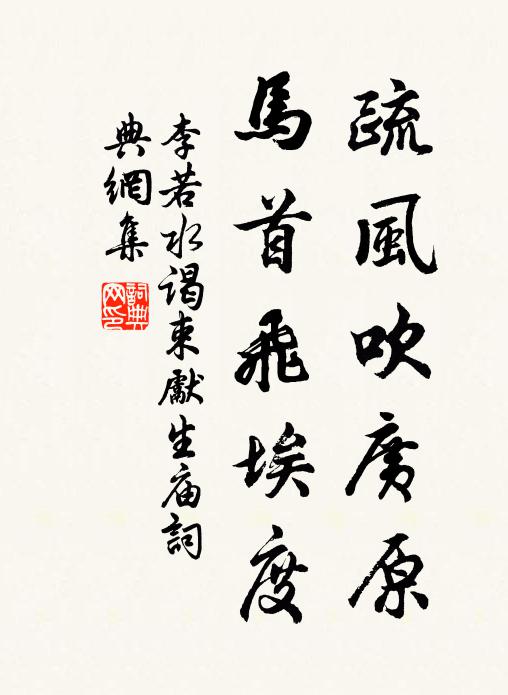 疏風吹廣原
馬首飛埃度
李若水謁東獻生庙詞
典網集
詞典網印